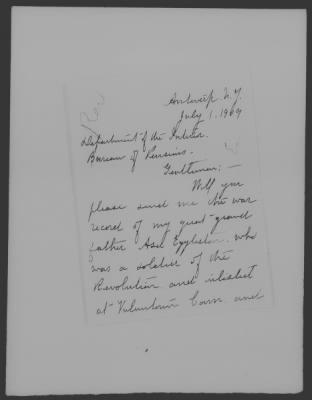 Rev
Antwerp N.Y.
July 1, 1909
Department of the Interior.
Bureau of Pensions.
Gentlemen; —
Will you
please send me the war
record of my great-grand
father Asa Eggleston, who
was a soldier of the
Revolution and inlisted
at Voluntown Conn. and